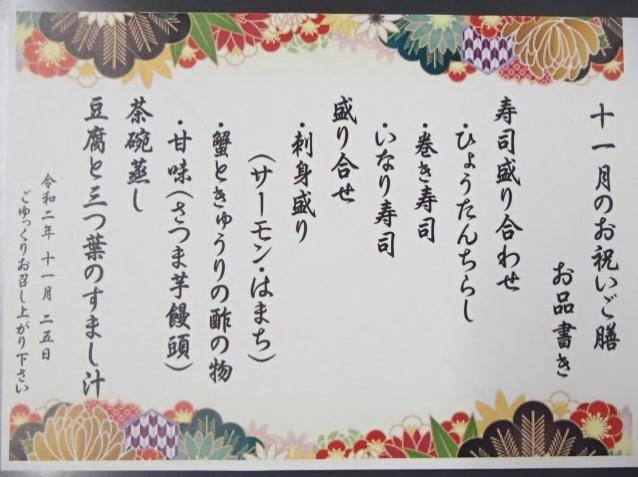 十一月のお祝いご膳
お品書き
寿司盛り合わせ
・ひょうたんちらし
・巻き寿司
・いなり寿司
盛り合せ
・刺身盛り
(サーモン・はまち)
・蟹ときゅうりの酢の物
・甘味(さつま芋饅頭)
茶碗蒸し
豆腐と三つ葉のすまし汁
令和二年 十一月 二五日
ごゆっくりお召し上がり下さい